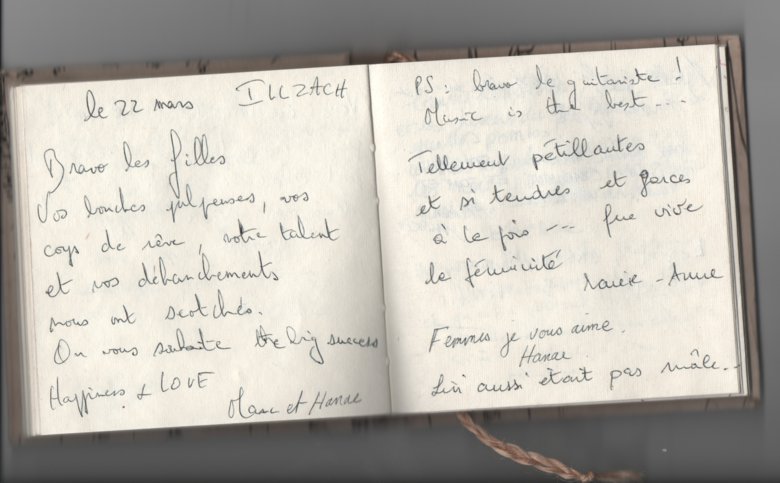 le 22 mars ILLZACH
Bravo les filles
Vos bouches pulpeuses, vos
corps de rêve, votre talent
et vos déhanchements
nous ont scotchés.
On vous souhaite the big success
Happiness & LOVE
Marc et Hanae
PS : bravo le guitariste !
Music is the best...
Tellement pétillantes
et si tendres et garces
à la fois --- que vive
la féminité
Marie-Anne
Femmes je vous aime.
Hanae.
aussi était pas mâle..